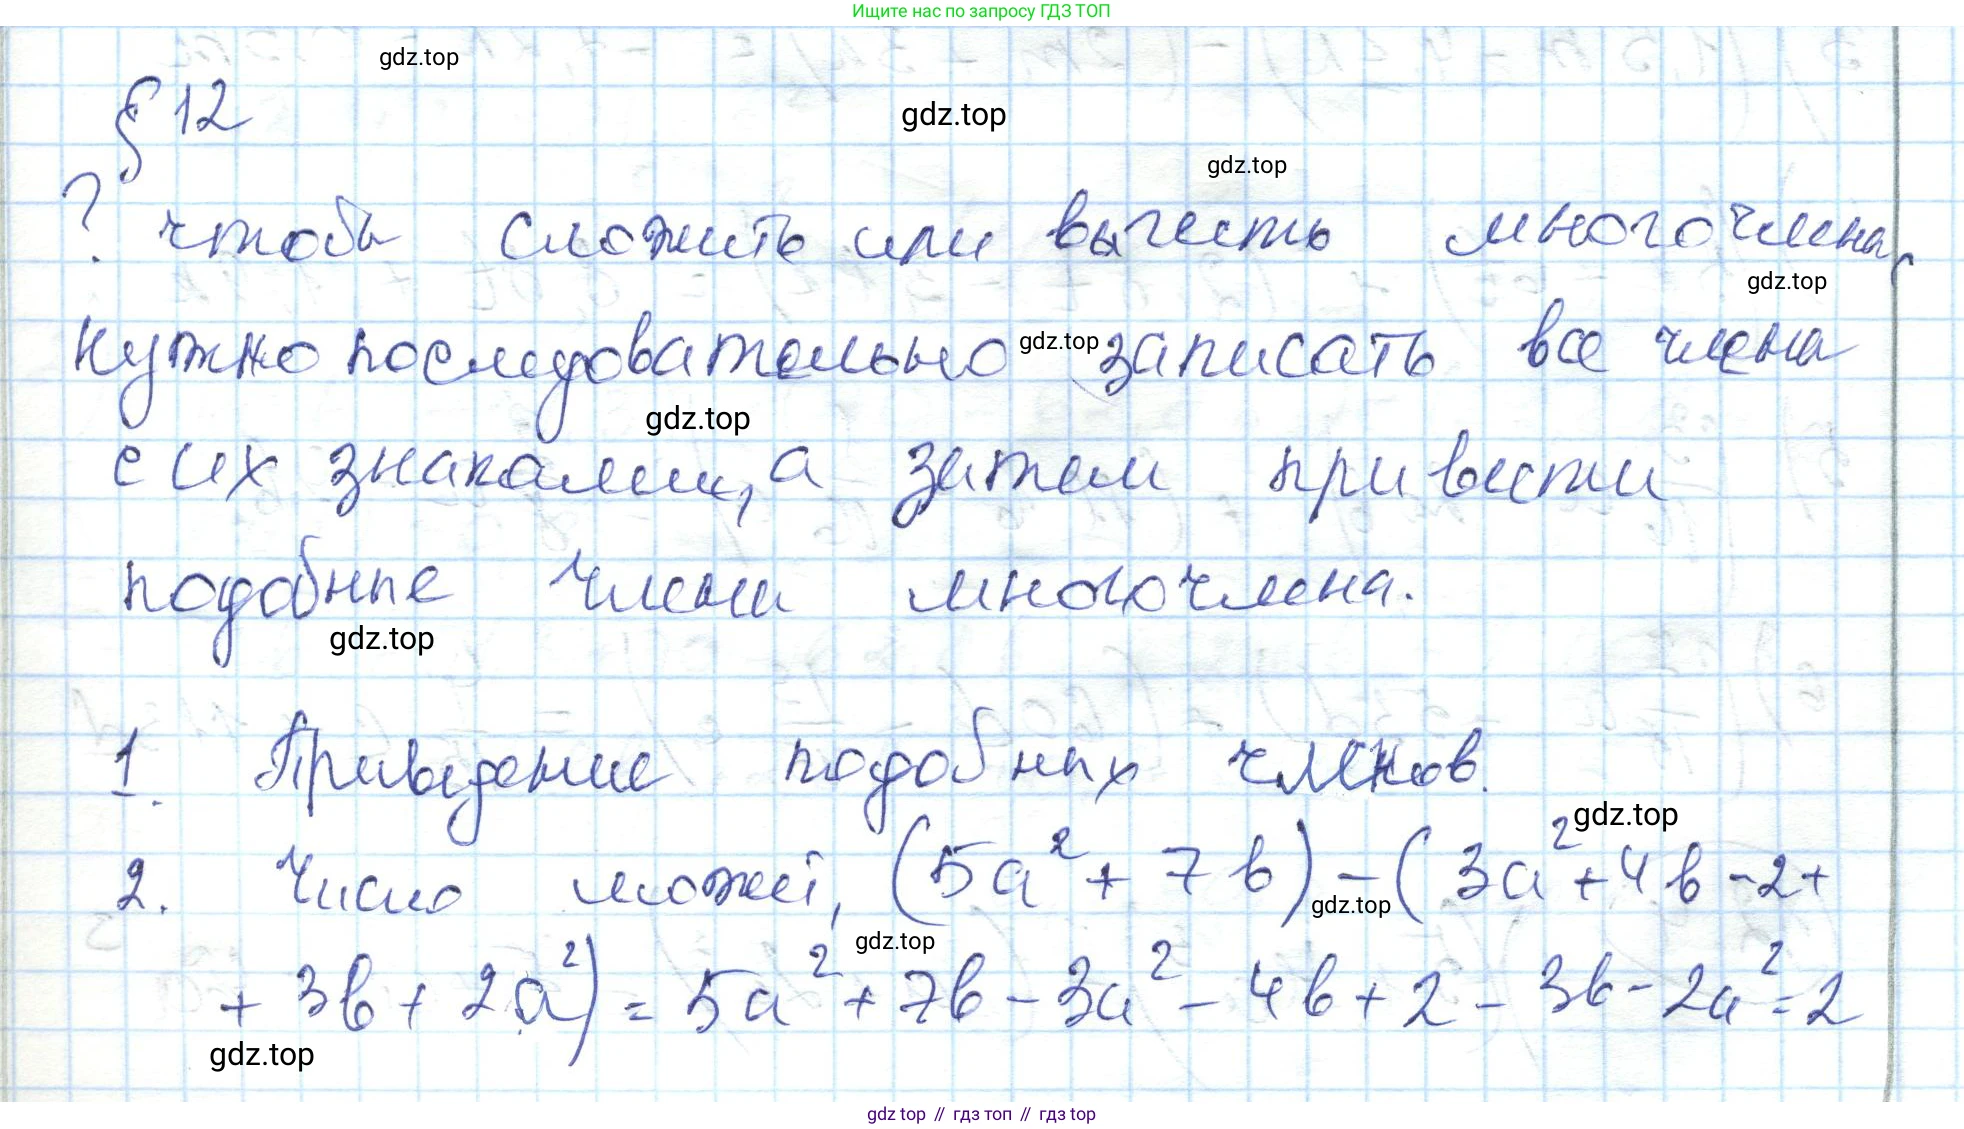 Ищите нас по запросу ГДЗ ТОП
gdz.top
§ 12
gdz.top
gdz.top
? чтобы сложить или вычесть многочлены,
gdz.top
нужно последовательно записать все члены
gdz.top
gdz.top
с их знаками, а затем привести
подобные члены многочлена.
gdz.top
1. Приведение подобных членов.
gdz.top
2. Число может, (5a² + 7b) - (3a² + 4b - 2 +
gdz.top
gdz.top
+ 3b + 2a²) = 5a² + 7b - 3a² - 4b + 2 - 3b - 2a² = 2
gdz.top
gdz top // гдз топ // гдз top